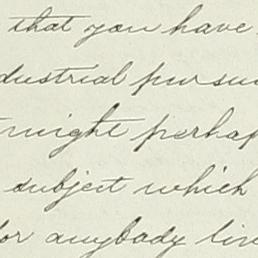 that you have
dustrial pursu
might perhap
subject which
for anybody liv